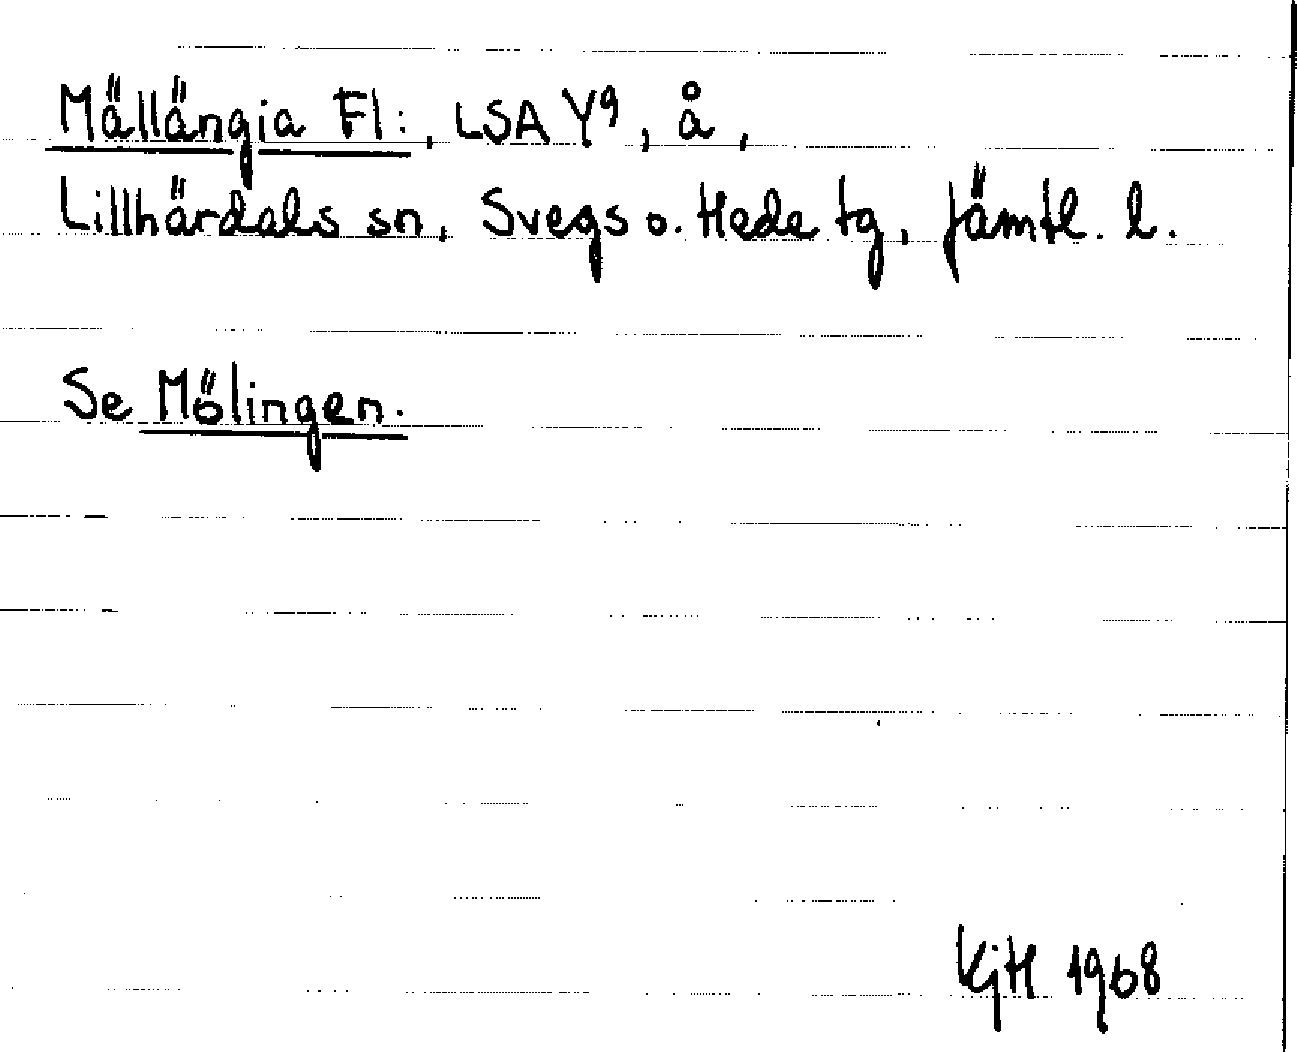 Mällängia Fl:, LSA Y⁹, å,
Lillhärdals sn, Svegs o. Hede tg, Jämtl. l.
Se Mölingen.
KjH 1968